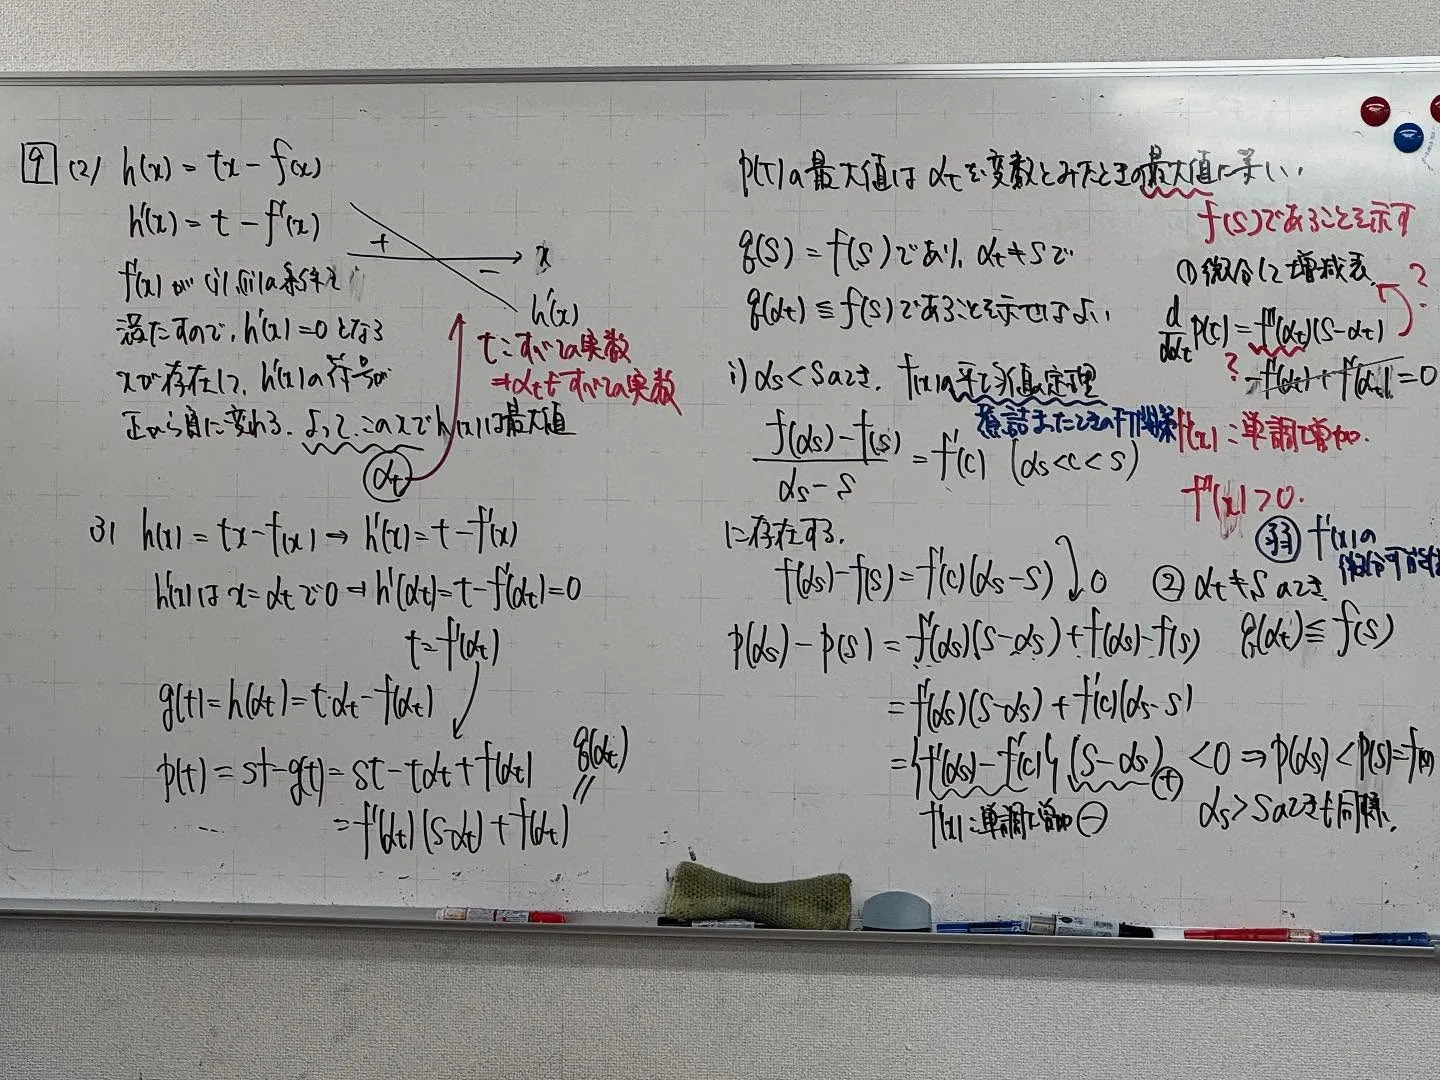 9 (2) h(x) = tx - f(x)
h'(x) = t - f'(x)
+
-
x
h'(x)
f'(x) が (i), (ii) の条件を
満たすので, h'(x) = 0 となる
xが存在して, h'(x)の符号が
正から負に変わる. よって, このxでh(x)は最大値
αt
t:すべての実数
→αtもすべての実数
(3) h(x) = tx - f(x) → h'(x) = t - f'(x)
h'(x)は x = αt で 0 → h'(αt) = t - f'(αt) = 0
t = f'(αt)
g(t) = h(αt) = t・αt - f(αt)
p(t) = st - g(t) = st - tαt + f(αt)
q(αt)
= f'(αt)(s-αt) + f(αt)
p(t)の最大値は αt を変数とみたときの最大値に等しい.
f(s)であることを示す
q(s) = f(s)であり, αt ≠ s で
q(αt) ≦ f(s)であることを示せばよい.
① 微分して増減表.
?
d/dαt p(t) = f''(αt)(s-αt)
?
-f'(αt) + f'(αt) = 0
i) αs < s のとき, f(x)の平均値の定理
煮詰まったときのf'関係
f'(x):単調増加.
(f(αs) - f(s))/(αs - s) = f'(c) (αs < c < s)
f''(x) > 0.
に存在する.
弱 f'(x)の
微分可能性
f(αs) - f(s) = f'(c)(αs - s)
0
② αt ≠ s のとき
q(αt) ≦ f(s)
p(αs) - p(s) = f'(αs)(s-αs) + f(αs) - f(s)
= f'(αs)(s-αs) + f'(c)(αs - s)
= {f'(αs) - f'(c)}(s-αs) < 0 ⇒ p(αs) < p(s) = f(s)
+
f'(x):単調増加 -
αs > s のときも同様.